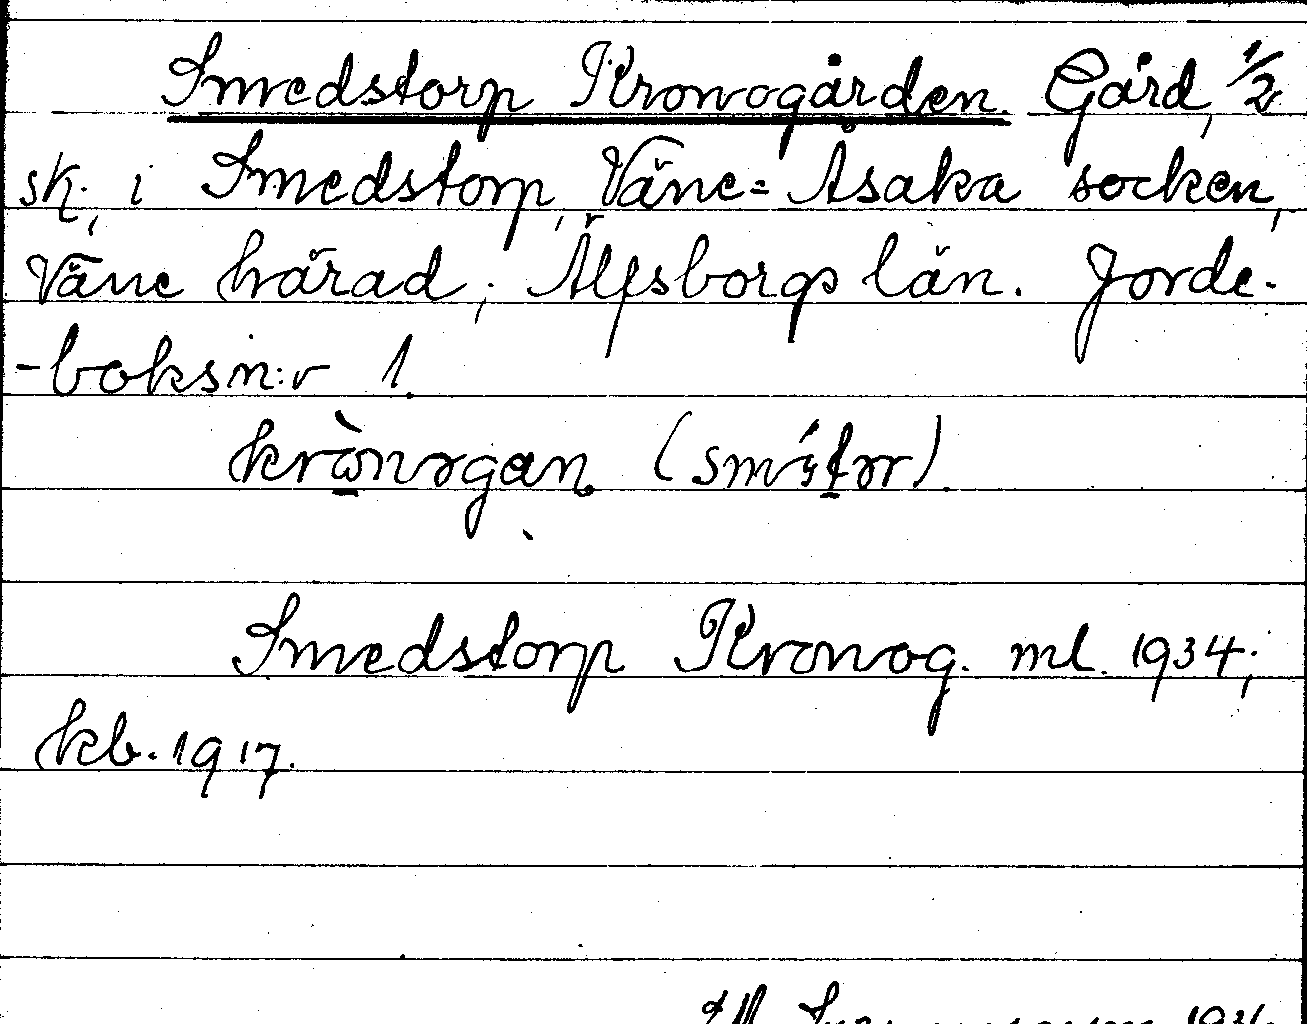 Smedstorp Kronogården. Gård, 1/2
sk., i Smedstorp, Väne-Åsaka socken,
Väne härad, Älfsborgs län. Jorde-
-boksn:r 1.
Smedstorp Kronog. ml. 1934;
kb. 1917.